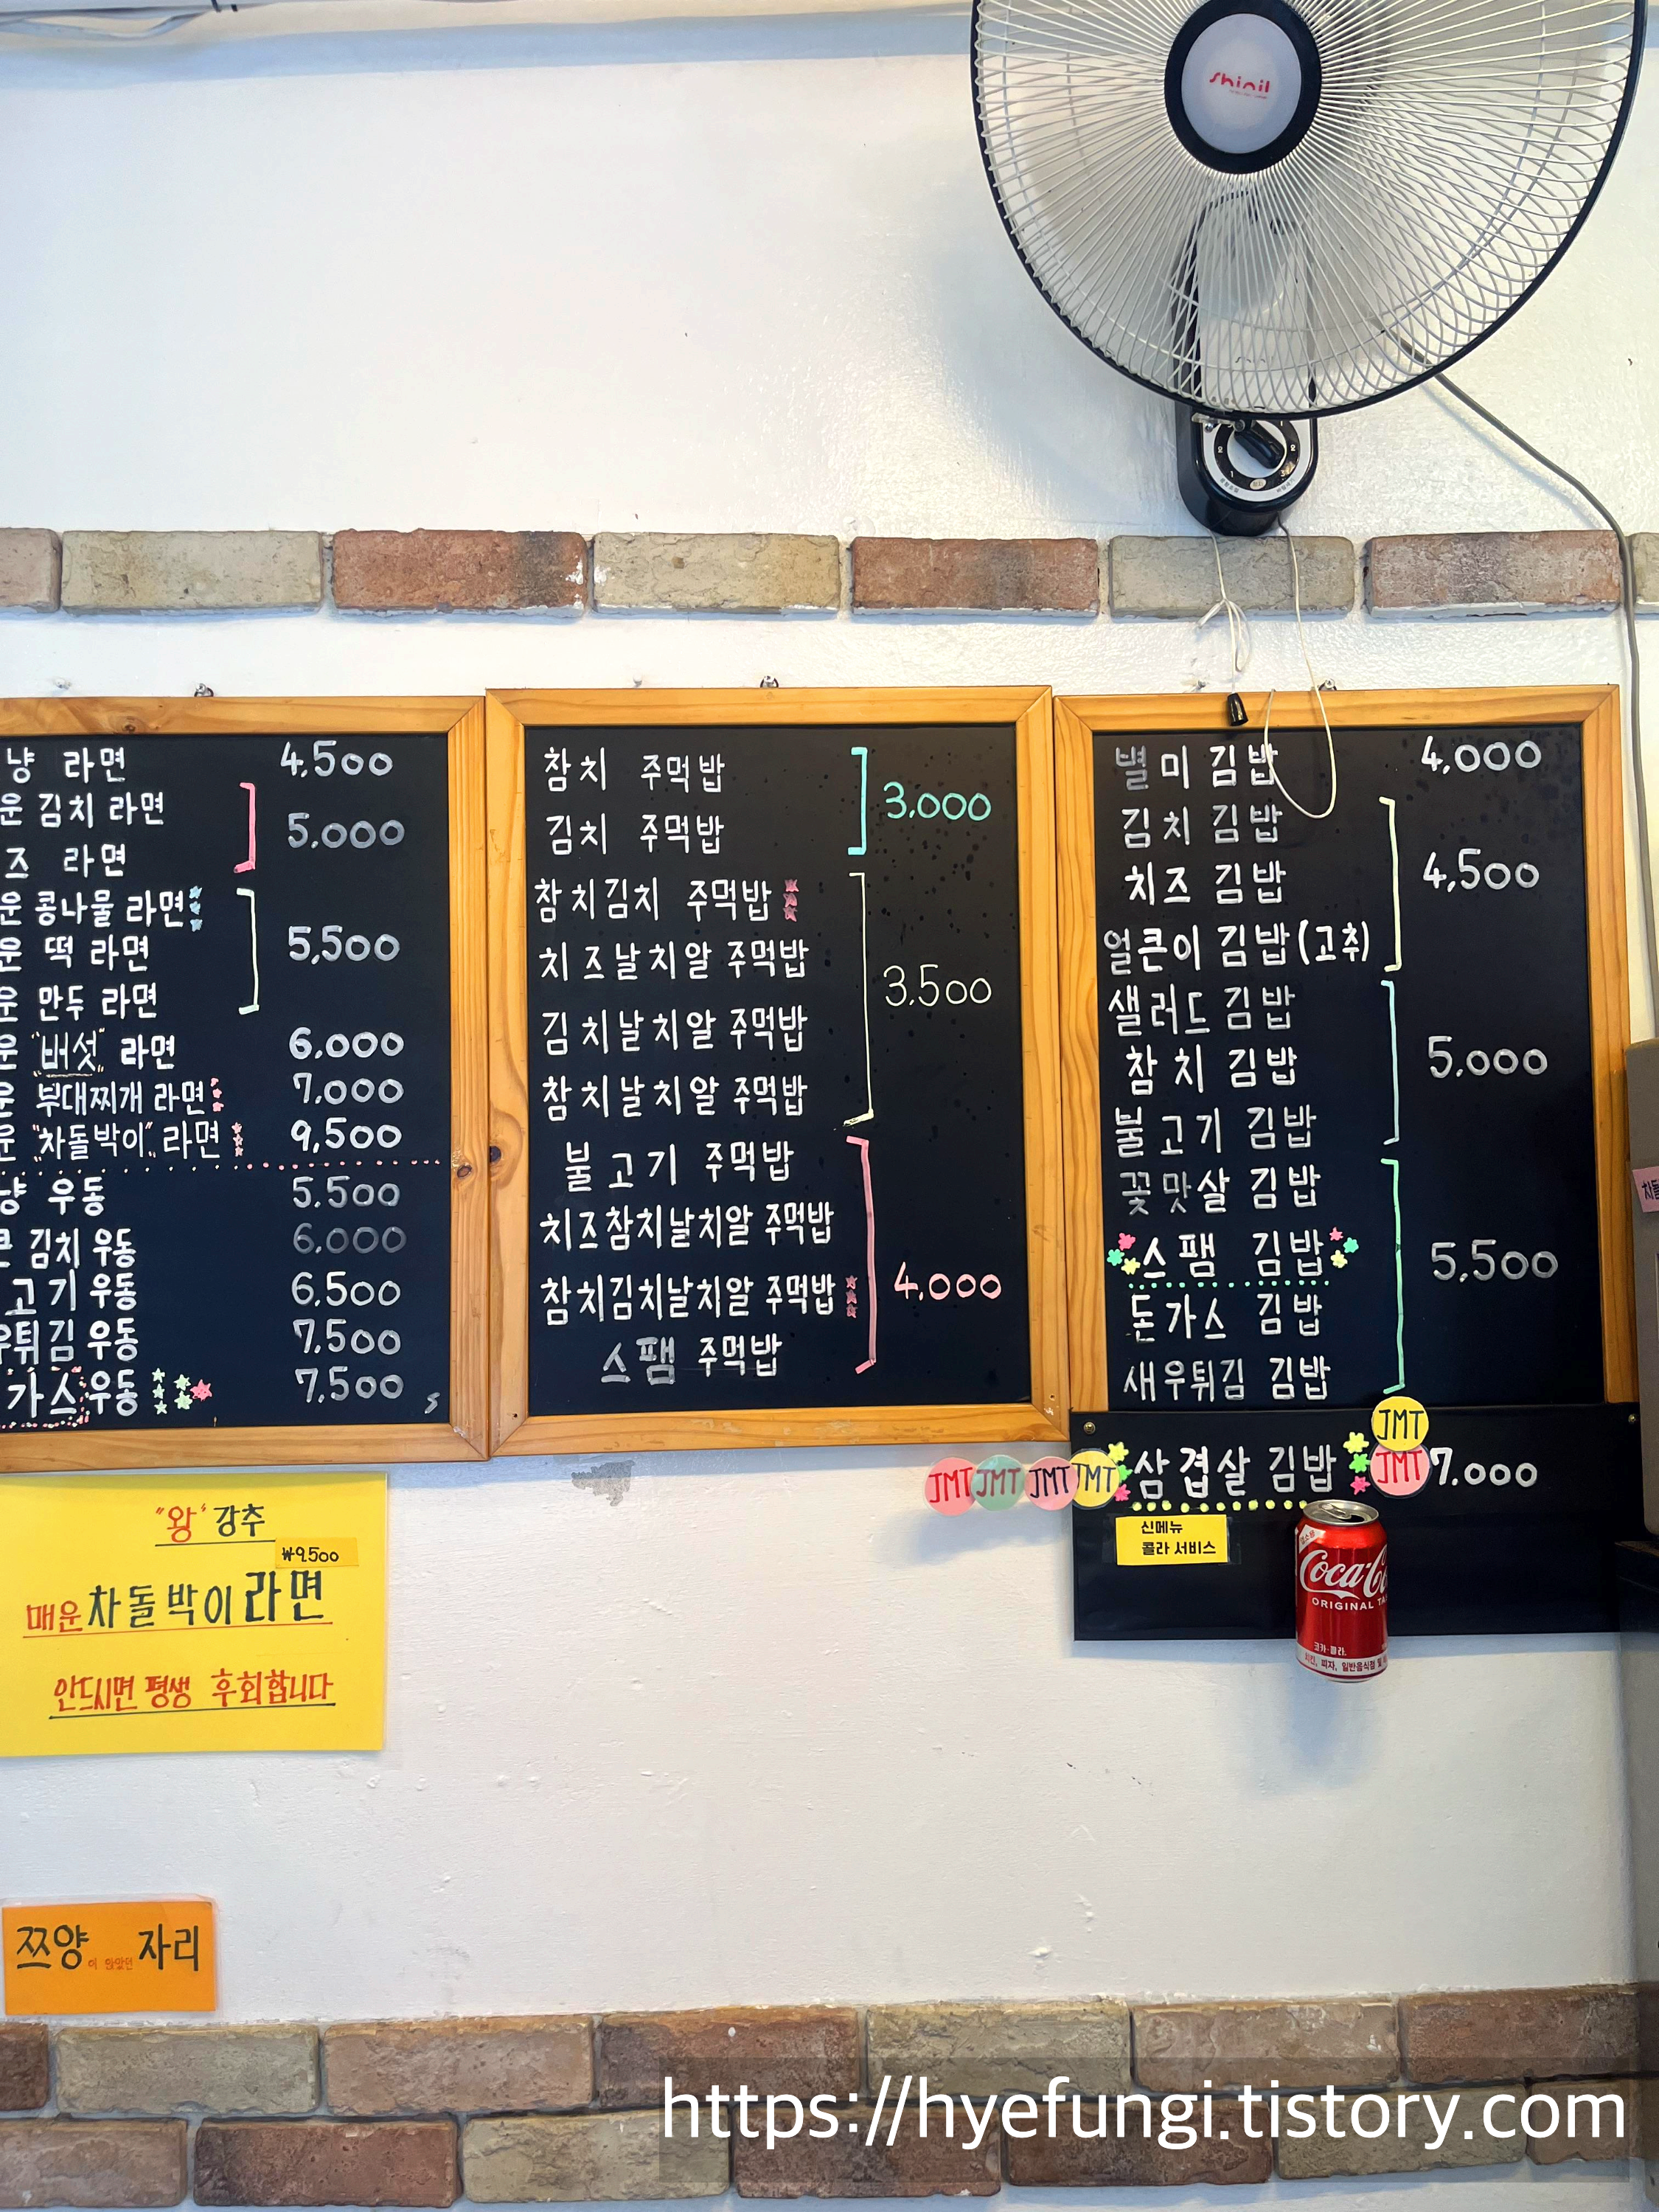 shinil
냥 라면 4,500
운 김치 라면
즈 라면
5,000
운 콩나물 라면
운 떡 라면
운 만두 라면
5,500
운 "버섯" 라면 6,000
운 부대찌개 라면 7,000
운 "차돌박이" 라면 9,500
냥 우동 5,500
큰 김치 우동 6,000
고기 우동 6,500
우튀김 우동 7,500
가스 우동 7,500
참치 주먹밥
김치 주먹밥
3,000
참치김치 주먹밥
치즈날치알 주먹밥
김치날치알 주먹밥
참치날치알 주먹밥
3,500
불고기 주먹밥
치즈참치날치알 주먹밥
참치김치날치알 주먹밥
스팸 주먹밥
4,000
별미 김밥 4,000
김치 김밥
치즈 김밥
얼큰이 김밥(고취)
4,500
샐러드 김밥
참치 김밥
불고기 김밥
5,000
꽃맛살 김밥
스팸 김밥
돈가스 김밥
새우튀김 김밥
5,500
JMT
JMT JMT JMT JMT 삼겹살 김밥 JMT 7,000
신메뉴
콜라 서비스
Coca-Co
ORIGINAL TA
코카-콜라.
치킨, 피자, 일반음식점 및
차돌
"왕" 강추
₩9500
매운 차돌박이 라면
안드시면 평생 후회합니다
쯔양이 앉았던 자리
https://hyefungi.tistory.com